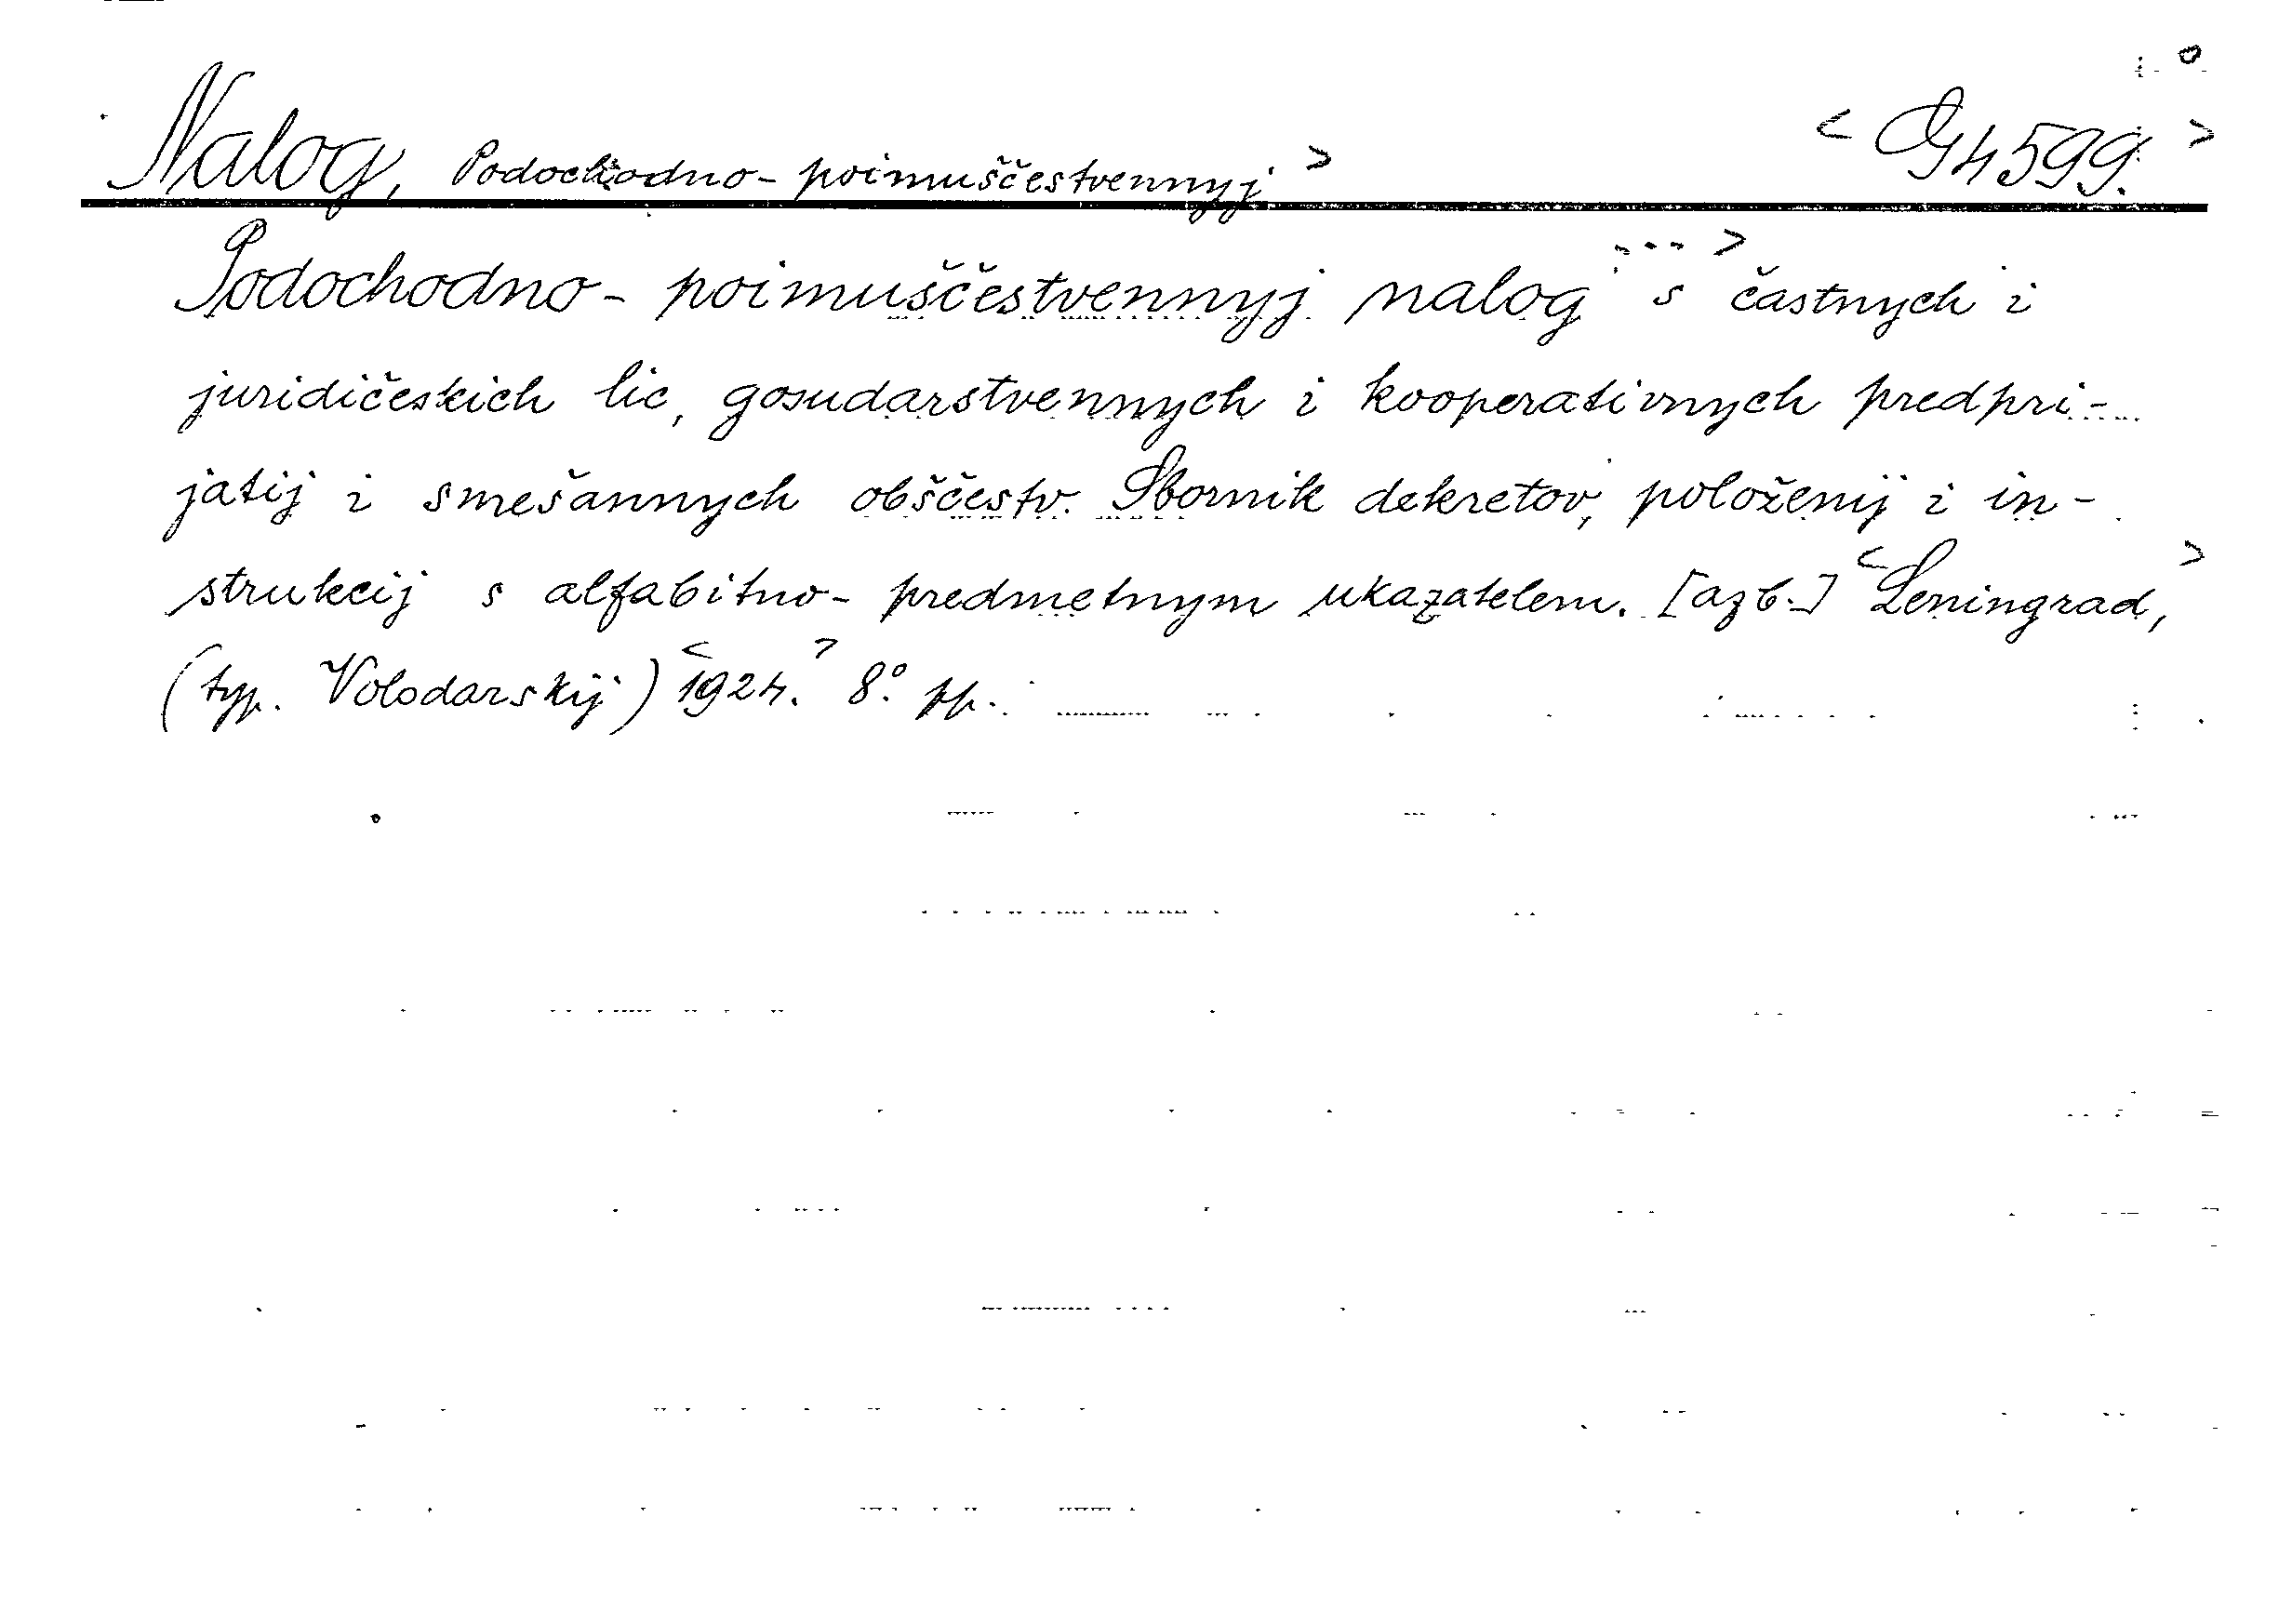 Nalog, Podochodno-poimuščestvennyj > < 4599. >
Podochodno-poimuščestvennyj nalog ...> s častnych i
juridičeskich lic, gosudarstvennych i kooperativnych predpri-
jatij i smešannych obščestv. Sbornik dekretov, položenij i in-
strukcij s alfabitno-predmetnym ukazatelem. [azb.] <Leningrad,>
(typ. Volodarskij) <1924.> 8° pp.